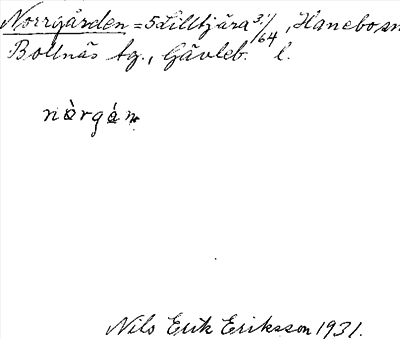 Norrgården = 5 Lilltjära 31/64, Hanebo, sn
Bollnäs tg., Gävleb. l.
nò̀rgán
Nils Erik Eriksson 1931.